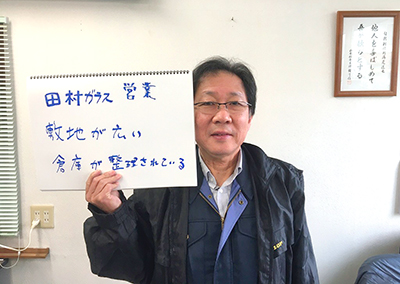 田村ガラス 営業
敷地が広い
倉庫が整理されている
他人を喜ばしめて